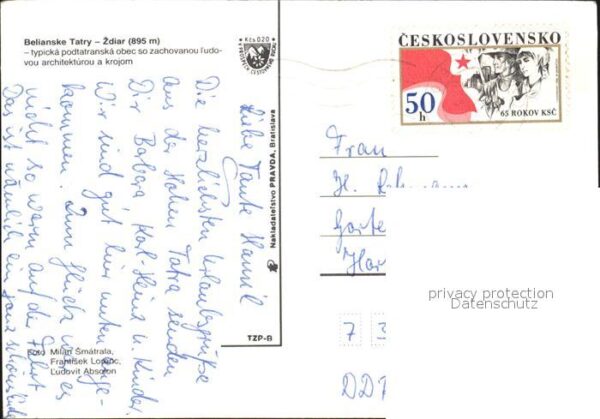 Belianske Tatry – Ždiar (895 m)
– typická podtatranská obec so zachovanou ľudo-
vou architektúrou a krojom
Kčs 0.20
V PROSPECH CESTOVNÉHO RUCHU
ČESKOSLOVENSKO
50 h
65 ROKOV KSČ
Liebe Tante Hansil
Die herzlichsten Urlaubsgrüße
aus der Hohen Tatra senden
Dir Barbara, Karl-Heinz u. Kinder.
Wir sind gut hier unten ange-
kommen. Zum Glück war es
nicht so warm auf der Fahrt
Das ist nämlich ein ganz
Nakladateľstvo PRAVDA, Bratislava
TZP-B
Foto Milan Šmátrala,
František
Ľudovít Absolon
Frau
H.
Garte
Har
privacy protection
Datenschutz
7 3
DD